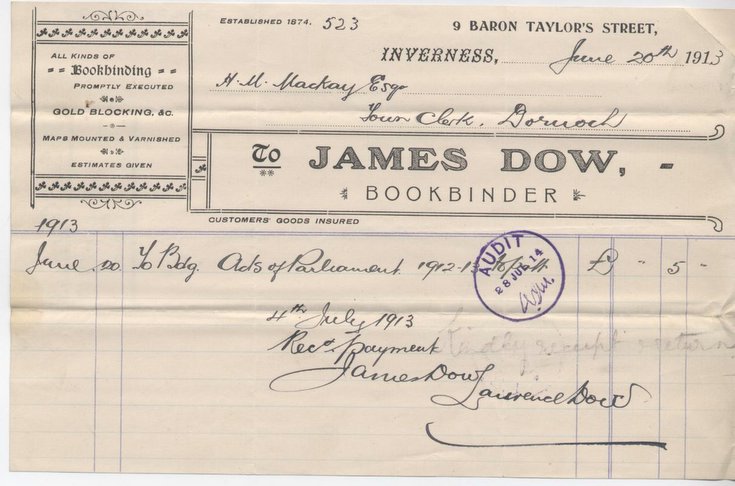 ESTABLISHED 1874. 523
9 BARON TAYLOR'S STREET,
INVERNESS, June 20th 1913
ALL KINDS OF
Bookbinding
PROMPTLY EXECUTED
GOLD BLOCKING, &c.
MAPS MOUNTED & VARNISHED
ESTIMATES GIVEN
H. M. Mackay Esqr
Town Clerk, Dornoch
To JAMES DOW, -
BOOKBINDER
CUSTOMERS' GOODS INSURED
1913
June 20 To Bdg. Acts of Parliament 1912-1 £ " 5 "
AUDIT
28 JUL 14
4th July 1913
Recd Payment
Kindly receipt & return
James Dow
Lawrence Dow